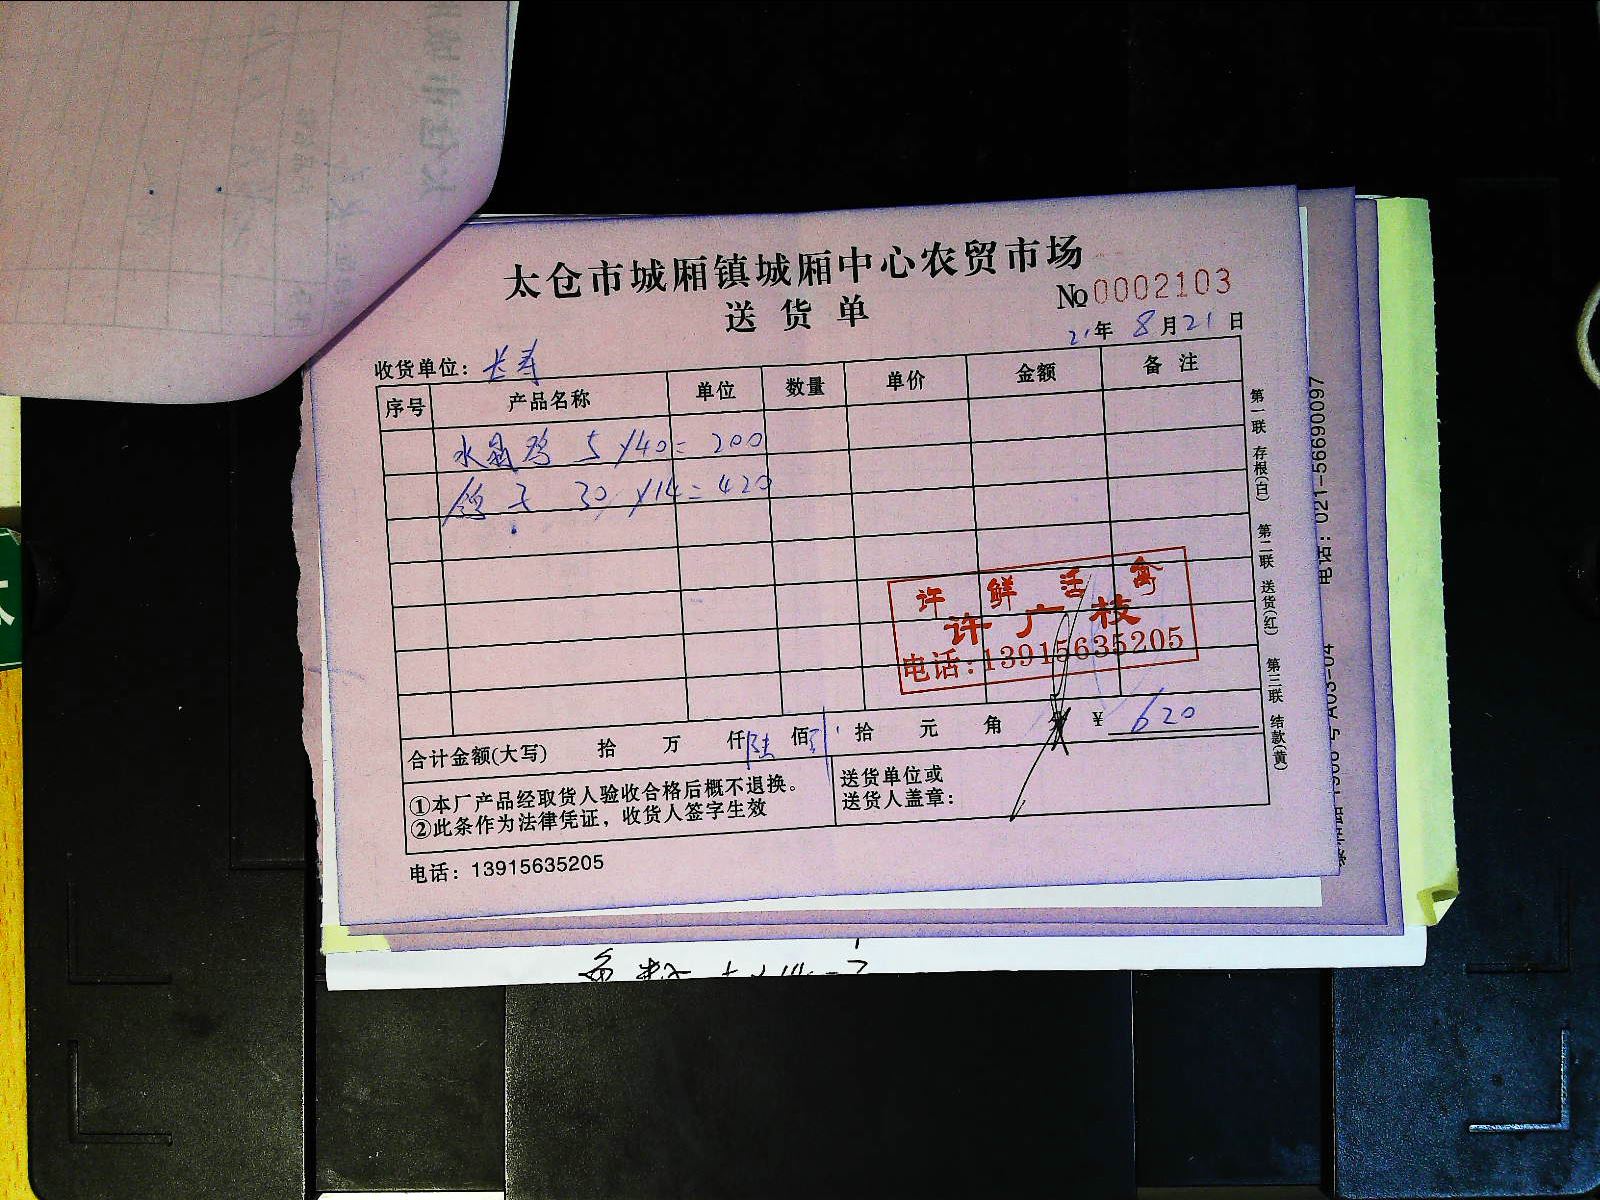 太仓市城厢镇城厢中心农贸市场
送货单
No 0002103
21年 8月21日
收货单位：长寿
序号 产品名称 单位 数量 单价 金额 备注
水晶鸡 5×40=200
鸽子 30×14=420
许 鲜 活 禽
许广枝
电话:13915635205
合计金额(大写) 拾 万 仟陆佰 拾 元 角 分 ¥ 620
①本厂产品经取货人验收合格后概不退换。
②此条作为法律凭证，收货人签字生效
送货单位或
送货人盖章：
电话：13915635205
第一联 存根(白) 第二联 送货(红) 第三联 结款(黄)
电话：021-56690097